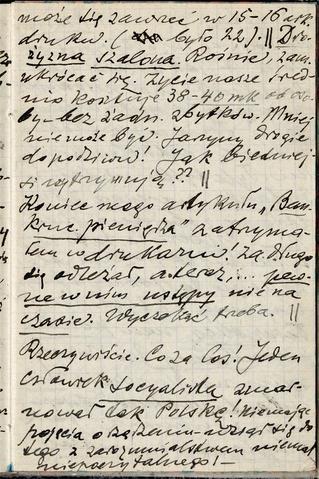 może się zawrzeć w 15-16 ark.
druku. ( było 22). || Dro-
żyzna szalona. Rośnie, zam.
ukrócać się. Życie nasze śred-
nio kosztuje 38-40 mk od oso-
by - bez żadn. zbytków. Mniej
nie może być. Jarzyny drogie
do podziwu! Jak biedniej-
si wytrzymują?? ||
Koniec mego artykułu "Ban-
kruc. pieniądza" zatrzyma-
łem w drukarni! Za długo
się odleżał, a teraz,... pew-
ne w nim ustępy nie na
czasie. Wyczekać trzeba. ||
Rzeczywiście. Co za los! Jeden
człowiek socyalista zmar-
nował tak Polskę! Nie mając
pojęcia o rządzeniu - wziął się do
tego z zarozumialstwem niemal
niepoczytalnego! -